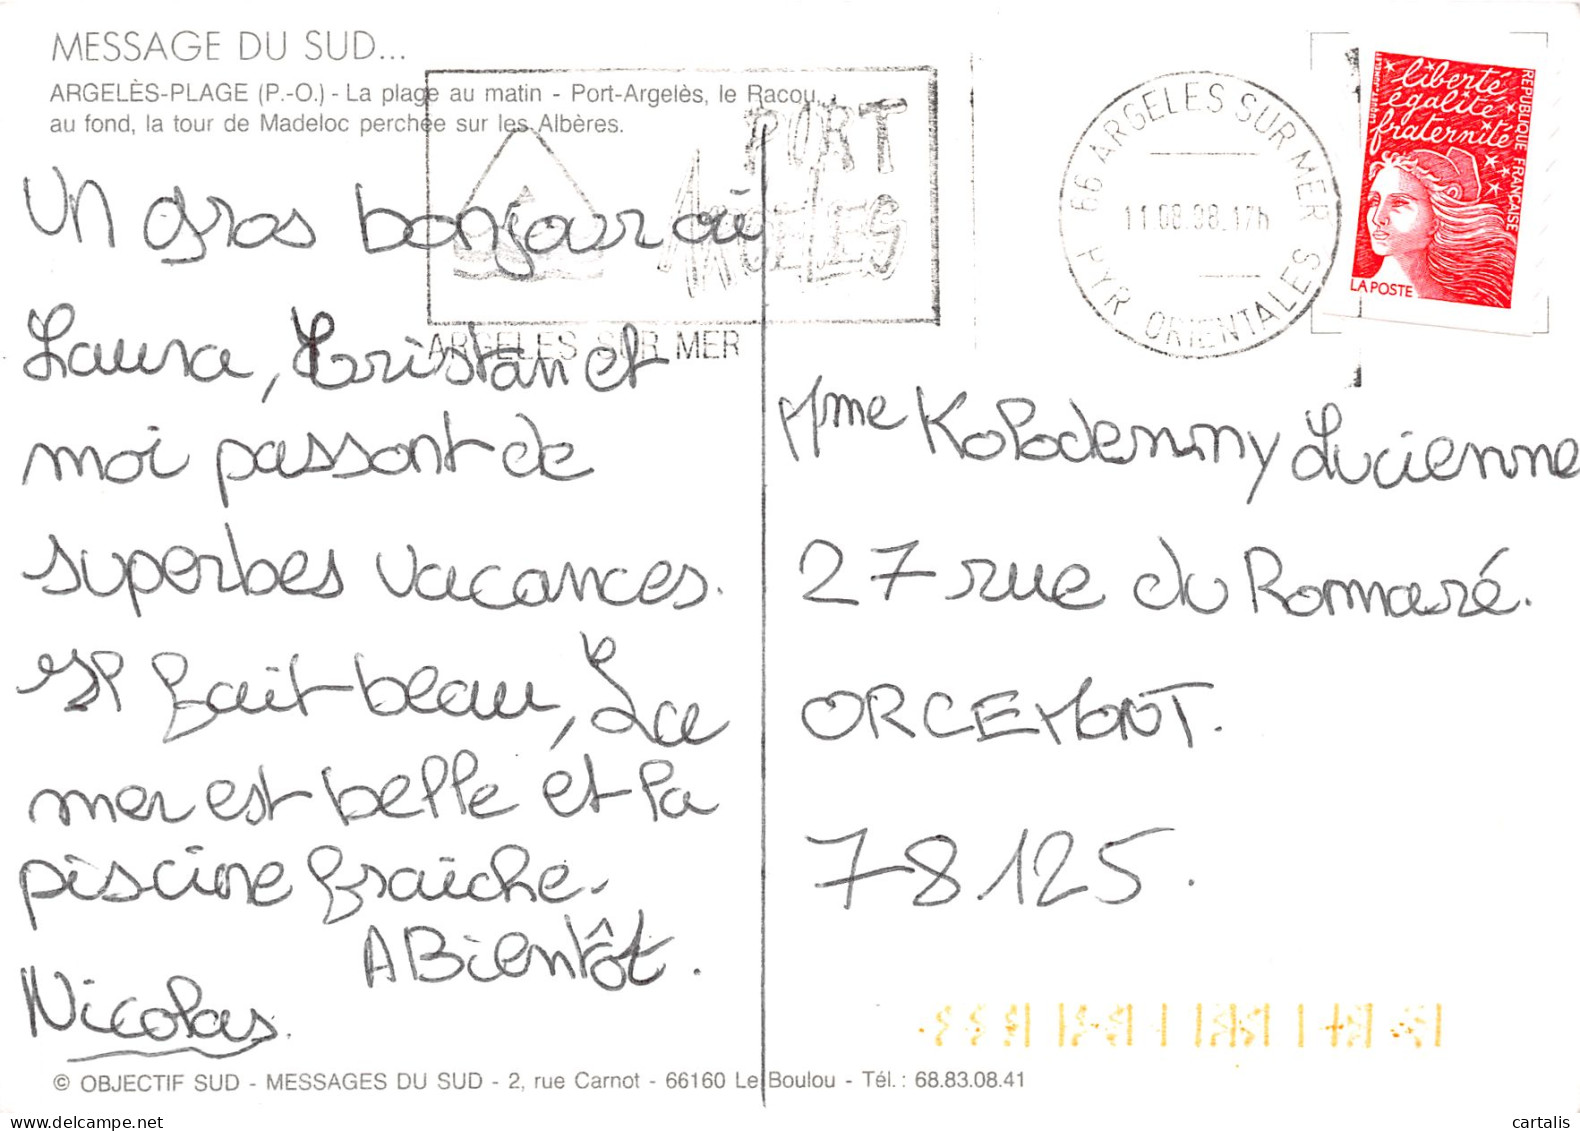 MESSAGE DU SUD...
ARGELÈS-PLAGE (P.-O.) - La plage au matin - Port-Argelès, le Racou...
au fond, la tour de Madeloc perchée sur les Albères.
PORT
ARGELES
ARGELES SUR MER
66 ARGELES SUR MER
11.08.98.17h
PYR ORIENTALES
liberté
égalité
fraternité
REPUBLIQUE FRANÇAISE
LA POSTE
Un gros bonjour où
Laura, Tristan et
moi passont de
superbes vacances.
Il fait beau, La
mer est belle et la
piscine fraîche.
A Bientôt.
Nicolas.
Mme Kolodennny Lucienne
27 rue du Romaré.
ORCEMONT.
78.125.
© OBJECTIF SUD - MESSAGES DU SUD - 2, rue Carnot - 66160 Le Boulou - Tél. : 68.83.08.41
cartalis